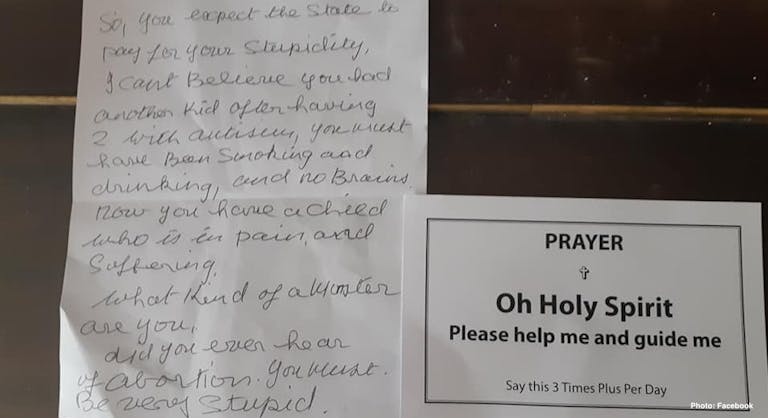 So, you expect the State to
pay for your Stupidity,
I cant Believe you had
another kid after having
2 with autism, you must
have Been Smoking and
drinking, and no Brains.
now you have a child
who is in pain, and
Suffering.
what kind of a Monster
are you,
did you ever hear
of abortion. You must.
Be very Stupid.
PRAYER
Oh Holy Spirit
Please help me and guide me
Say this 3 Times Plus Per Day
Photo: Facebook